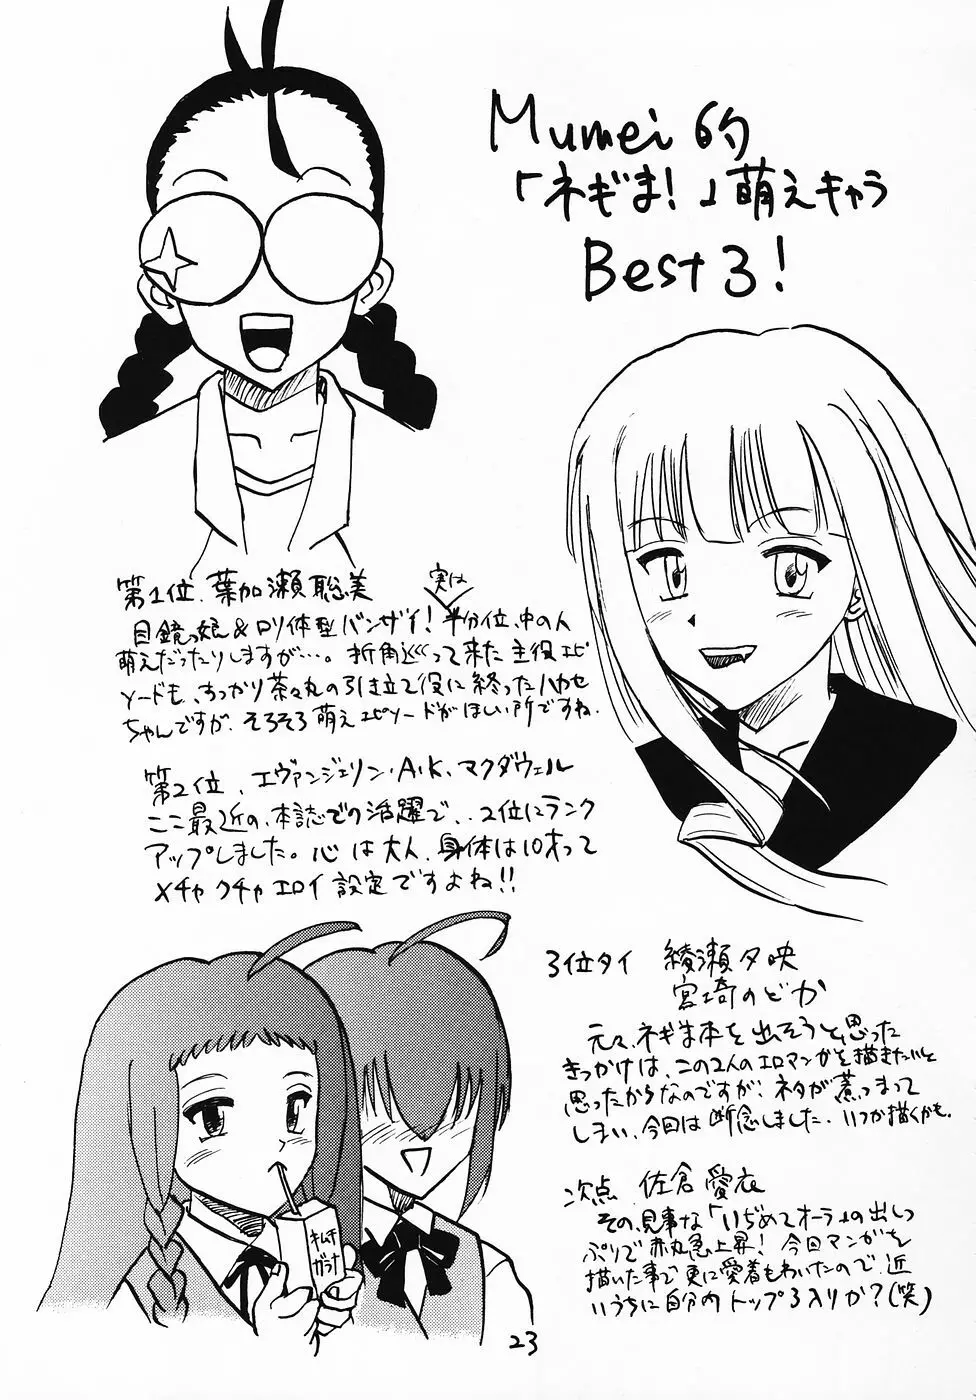 Mumei的
「ネギま!」萌えキャラ
Best 3!
第1位、葉加瀬聡美
実は
目鏡っ娘&ロリ体型バンザイ!半分位、中の人
萌えだったりしますが…。折角巡って来た主役エピ
ソードも、すっかり茶々丸の引き立て役に終ったハカセ
ちゃんですが、そろそろ萌えエピソードがほしい所ですね。
第2位、エヴァンジェリン・A.K.マクダウェル
ここ最近の、本誌での活躍で、、2位にランク
アップしました。心は大人、身体は10才って
メチャクチャエロイ設定ですよね!!
3位タイ 綾瀬夕映
宮崎のどか
元々、ネギま本を出そうと思った
きっかけは、この2人のエロマンガを描きたいと
思ったからなのですが、ネタが煮つまって
しまい、今回は断念しました。いつか描くかも。
次点 佐倉愛衣
その、見事な「いぢめてオーラ」の出しっ
ぷりで赤丸急上昇!今回マンガを
描いた事で更に愛着もわいたので、近
いうちに自分内トップ3入りか?(笑)
キムチ
ガラナ
23